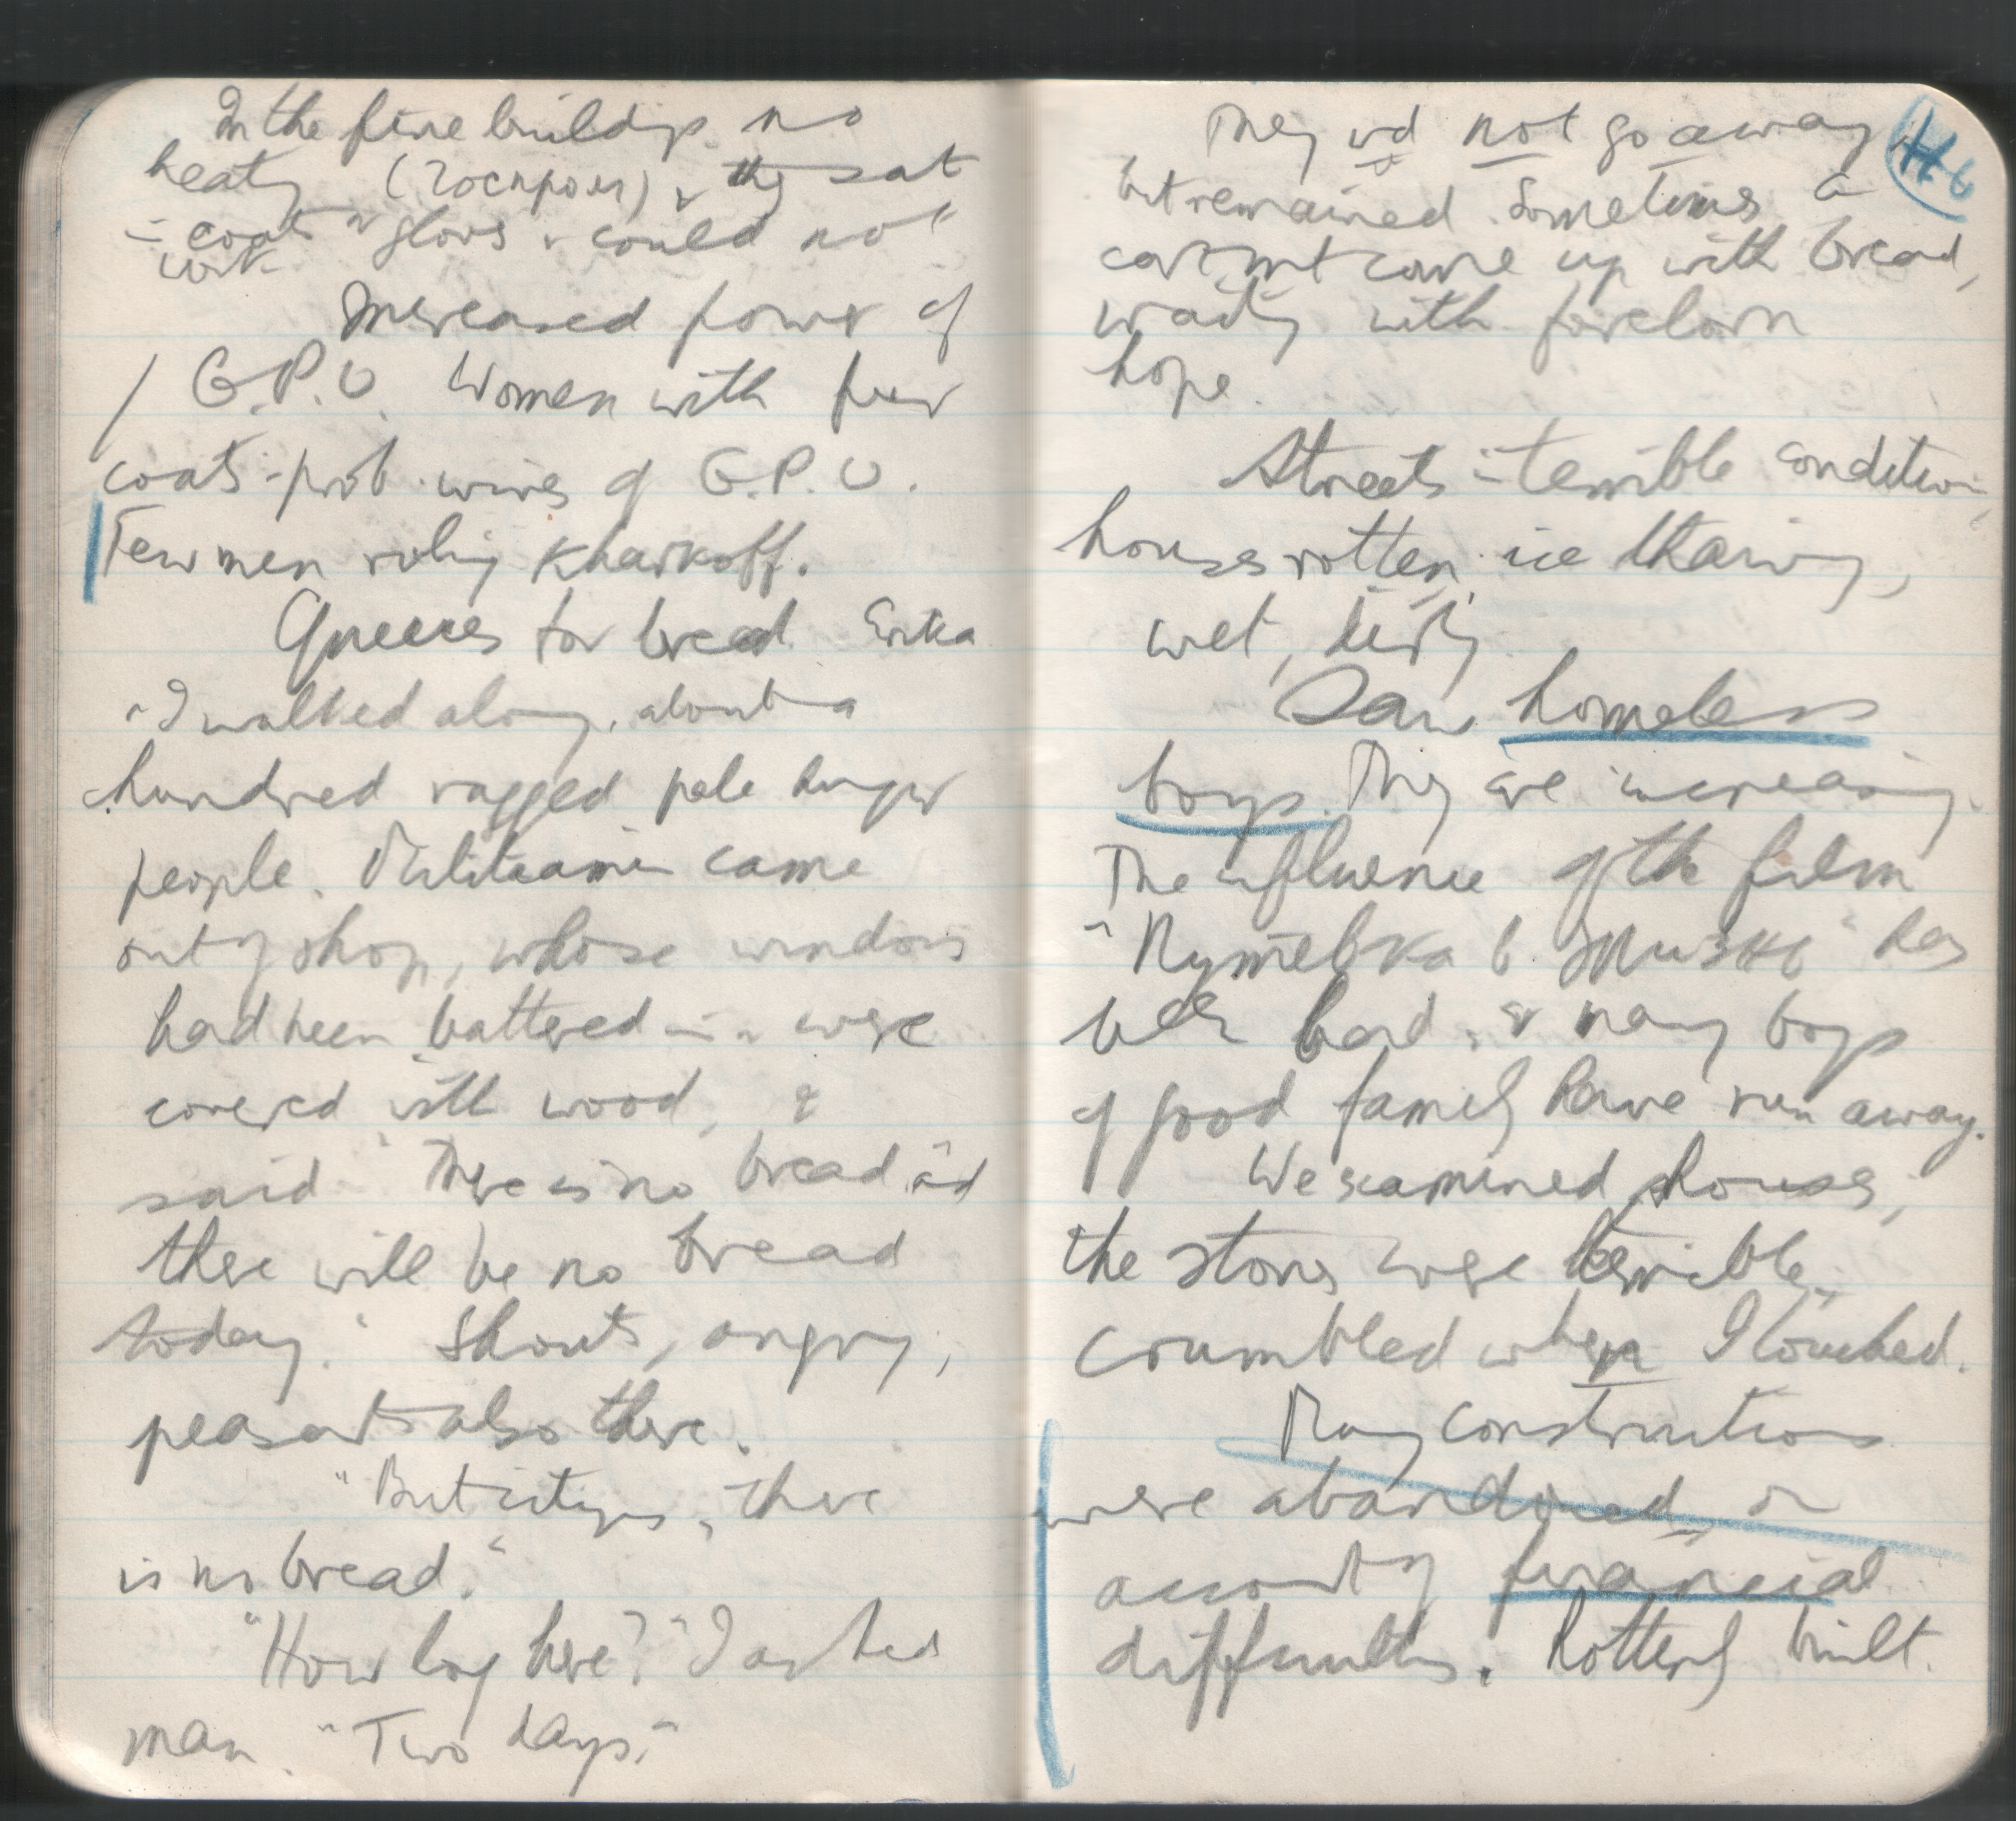 In the fine buildgs. no
heatg (Госпром), & they sat
in coats & gloves & could not
work.
Increased power of
/ G.P.U. Women with fur
coats - prob. wives of G.P.U.
Few men ruling Kharkoff.
Queues for bread. Erika
& I walked along, about a
hundred ragged pale hungry
people. Militiaman came
out of shop, whose windows
had been battered in & were
covered with wood, &
said "There is no bread and
there will be no bread
today." Shouts, angry,
peasants also there.
"But citizens, there
is no bread."
"How long here?" I asked
man. "Two days."
They wd not go away
but remained. Sometimes a
cart might come up with bread,
waiting with forelorn
hope.
Streets in terrible condition,
houses rotten, ice thawing,
wet, dirty.
Saw homeless
boys. They are increasing.
The influence of the film
"Путёвка в Жизнь" has
been bad, & many boys
of good family have run away.
We examined houses,
the stones were terrible,
crumbled when I touched.
Many constructions
were abandoned, on
account of financial
difficulties. Rottenly built.